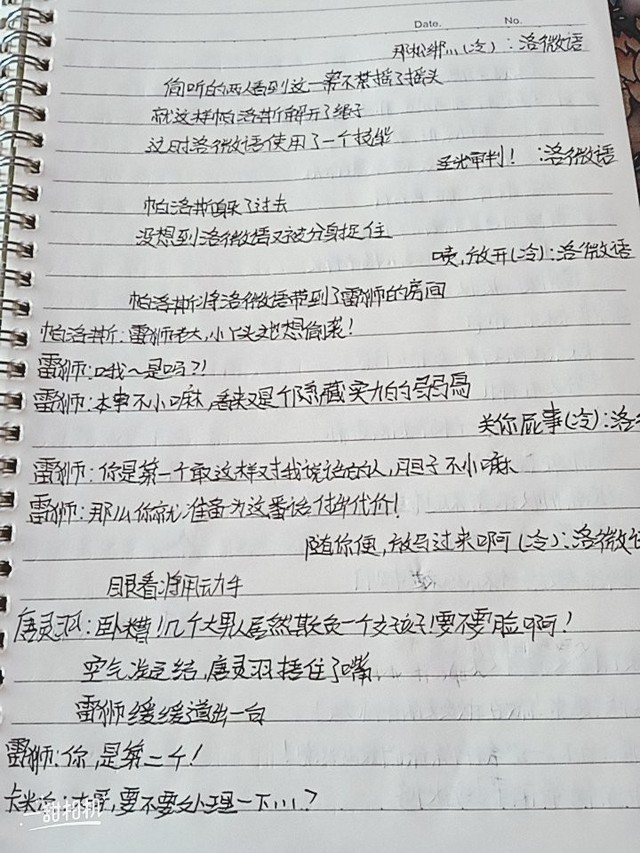 Date.    No.
那松绑…(冷)：洛微语
偷听的两人看到这一幕不禁摇了摇头
就这样帕洛斯解开了绳子
这时洛微语使用了一个技能
圣光审判！：洛微语
帕洛斯晕了过去
没想到洛微语又被分身捉住
啧,放开(冷):洛微语
帕洛斯将洛微语带到了雷狮的房间
帕洛斯:雷狮老大,小丫头她想偷袭!
雷狮:哦~是吗?!
雷狮:本事不小嘛,看来又是个隐藏实力的
关你屁事(冷):洛
雷狮:你是第一个敢这样对我说话的人,胆子不小嘛
雷狮:那么你就准备为这番话付出代价!
随你便,放马过来啊(冷):洛微语
眼看将用动手
唐灵羽:卧槽!几个大男人居然欺负一个女孩子!要不要脸啊!
空气凝结,唐灵羽捂住了嘴
雷狮缓缓道出一句
雷狮:你,是第二个!
卡米尔:大哥,要不要处理一下…?
一甜相机